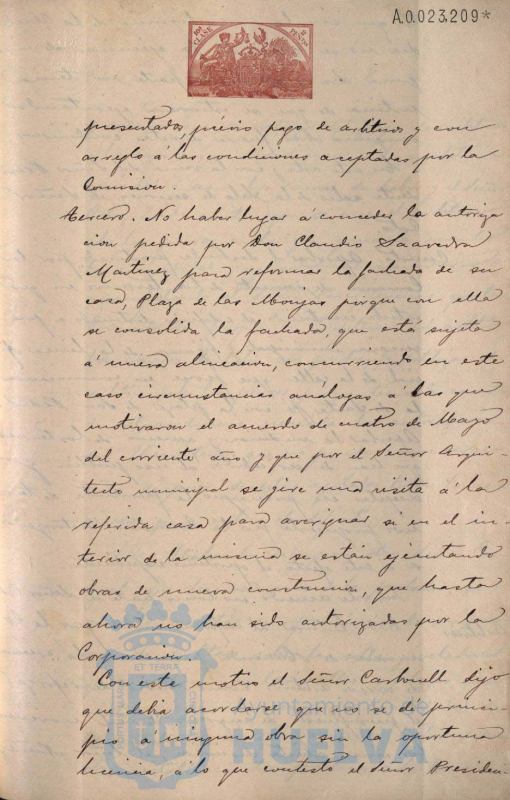 A.0.023,209*
10ª CLASE
2 PESETAS
presentados, prévio pago de arbitrios y con
arreglo á las condiciones aceptadas por la
Comision.
Tercero. No haber lugar á conceder la autoriza
cion pedida por Don Claudio Saavedra
Martinez para reformar la fachada de su
casa, Plaza de las Monjas porque con ella
se consolida la fachada, que está sujeta
á nueva alineacion, concurriendo en este
caso circunstancias análogas á las que
motivaron el acuerdo de cuatro de Mayo
del corriente año y que por el Señor Arqui-
tecto municipal se gire una visita á la
referida casa para averiguar si en el in-
terior de la misma se están ejecutando
obras de nueva construccion, que hasta
ahora no han sido autorizadas por la
Corporacion.
Con este motivo el Señor Carbonell dijo
que debia acordarse que no se dé princi-
pio á ninguna obra sin la oportuna
licencia, á lo que contestó el Señor Presiden-
ET TERRA
Ayuntamiento de
HUELVA